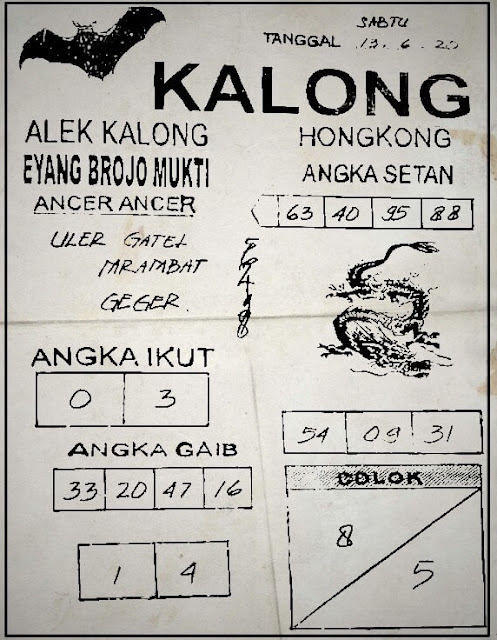 SABTU
TANGGAL 13.6.20
KALONG
ALEK KALONG
EYANG BROJO MUKTI
ANCER ANCER
ULER GATEL
MRAMBAT
GEGER.
HONGKONG
ANGKA SETAN
63 40 95 88
ANGKA IKUT
0 3
ANGKA GAIB
33 20 47 16
1 4
54 09 31
COLOK
8
5